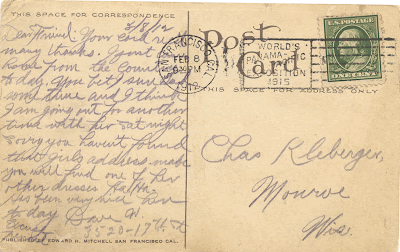 THIS SPACE FOR CORRESPONDENCE
2/8/12
Dear Friend: Your card
many thanks. I just
home from the Country
to day. You bet I
some time and I think
I am going out for another
time with her Sat. night
Sorry you haven't found
that Girls address. maybe
you will find one of her
other dresses Ha Ha.
Has been very here
to day Dave W.
3520-17th St
PUBLISHED EDWARD H. MITCHELL SAN FRANCISCO CAL.
Post Card
SAN FRANCISCO, CAL.
FEB 8
PM
WORLD'S
PANAMA-PACIFIC
EXPOSITION
1915
U.S. POSTAGE
ONE CENT
THIS SPACE FOR ADDRESS ONLY
Chas Kleberger,
Monroe
Wis.